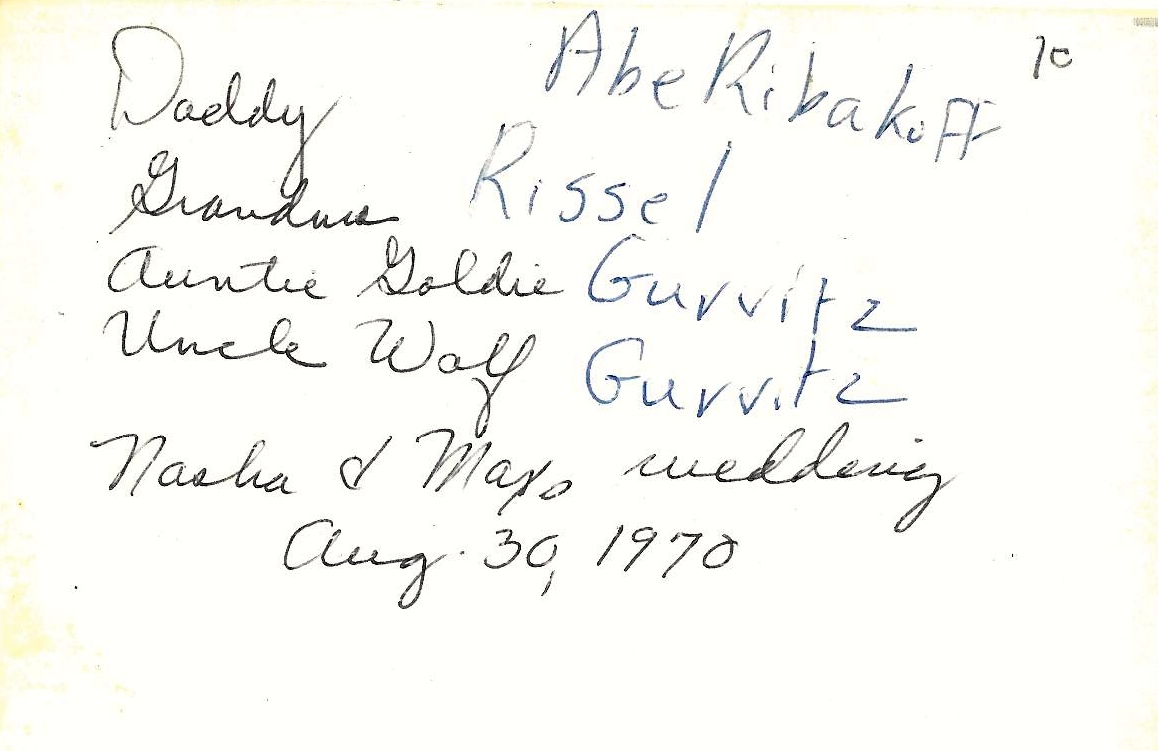 Daddy Abe Ribakoff 10
Grandma Rissel
Auntie Goldie Gurvitz
Uncle Wolf Gurvitz
Nasha & Maxs wedding
Aug. 30, 1970